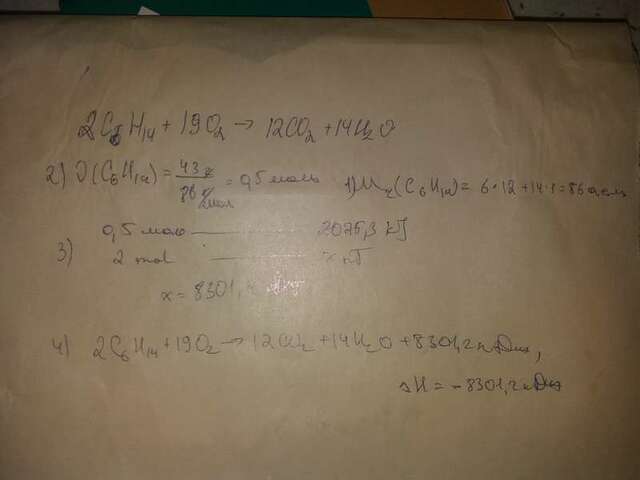 2C6H14 + 19O2 → 12CO2 + 14H2O
2) ν(C6H14) = 43 г / 86 г/моль = 0,5 моль 1) Mr(C6H14) = 6·12 + 14·1 = 86 а.е.м
3) 0,5 моль — 2075,3 kJ
2 mol — x kJ
x = 8301,2 кДж
4) 2C6H14 + 19O2 → 12CO2 + 14H2O + 8301,2 кДж,
ΔH = -8301,2 кДж